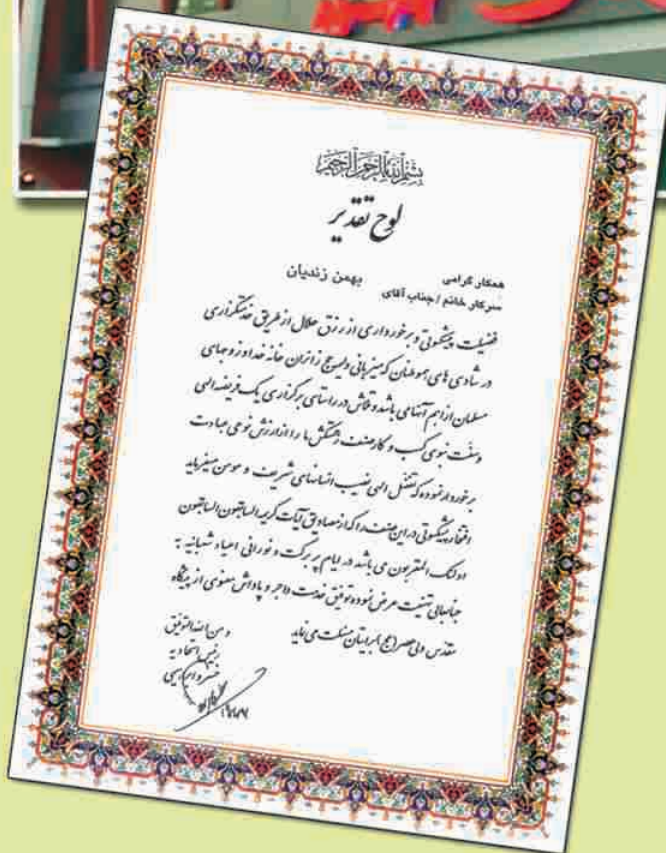 بسم الله الرحمن الرحیم
لوح تقدیر
همکار گرامی
سرکار خانم / جناب آقای بهمن زندیان
فضیلت پیشکسوتی و برخورداری از رزق حلال از طریق خدمتگزاری
در شادی های هموطنان که میزبانی ولیمه حج زائران خانه خدا و زوجهای
مسلمان از اهم آنها می باشد و تلاش در راستای برگزاری یک فریضه الهی
و سنت نبوی کسب و کار صنف زحمتکش ما را از ارزش نوعی عبادت
برخوردار نموده که تفضل الهی نصیب انسانهای شریف و مومن میفرماید
افتخار پیشکسوتی در این صنف را که از مصادیق آیات کریمه السابقون السابقون
اولئک المقربون می باشد در ایام پر برکت و نورانی اعیاد شعبانیه به
جنابعالی تهنیت عرض نموده توفیق خدمت و اجر و پاداش معنوی از پیشگاه
مقدس ولی عصر (عج) برایتان مسئلت می نماید
و من الله التوفیق
رئیس اتحادیه
خسرو ابراهیمی